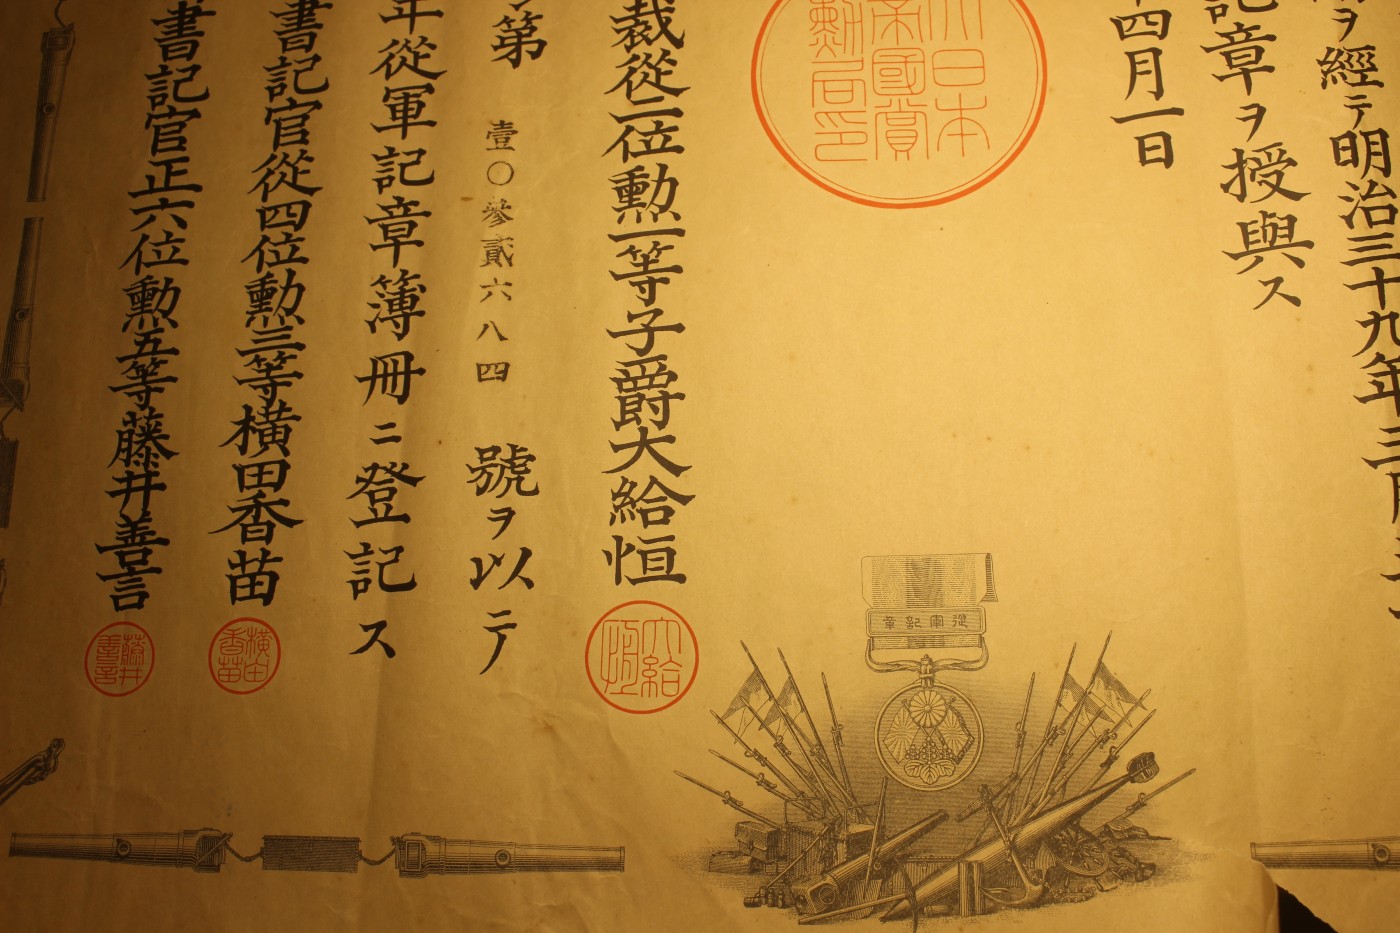 ヲ經テ明治三十九年三
記章ヲ授與ス
四月一日
大日本
帝國賞
勲局印
裁從二位勲一等子爵大給恒
大給
恒
第壹〇參貳六八四號ヲ以テ
年從軍記章簿冊ニ登記ス
書記官從四位勲三等横田香苗
横田
香苗
書記官正六位勲五等藤井善言
藤井
善言
從軍記章